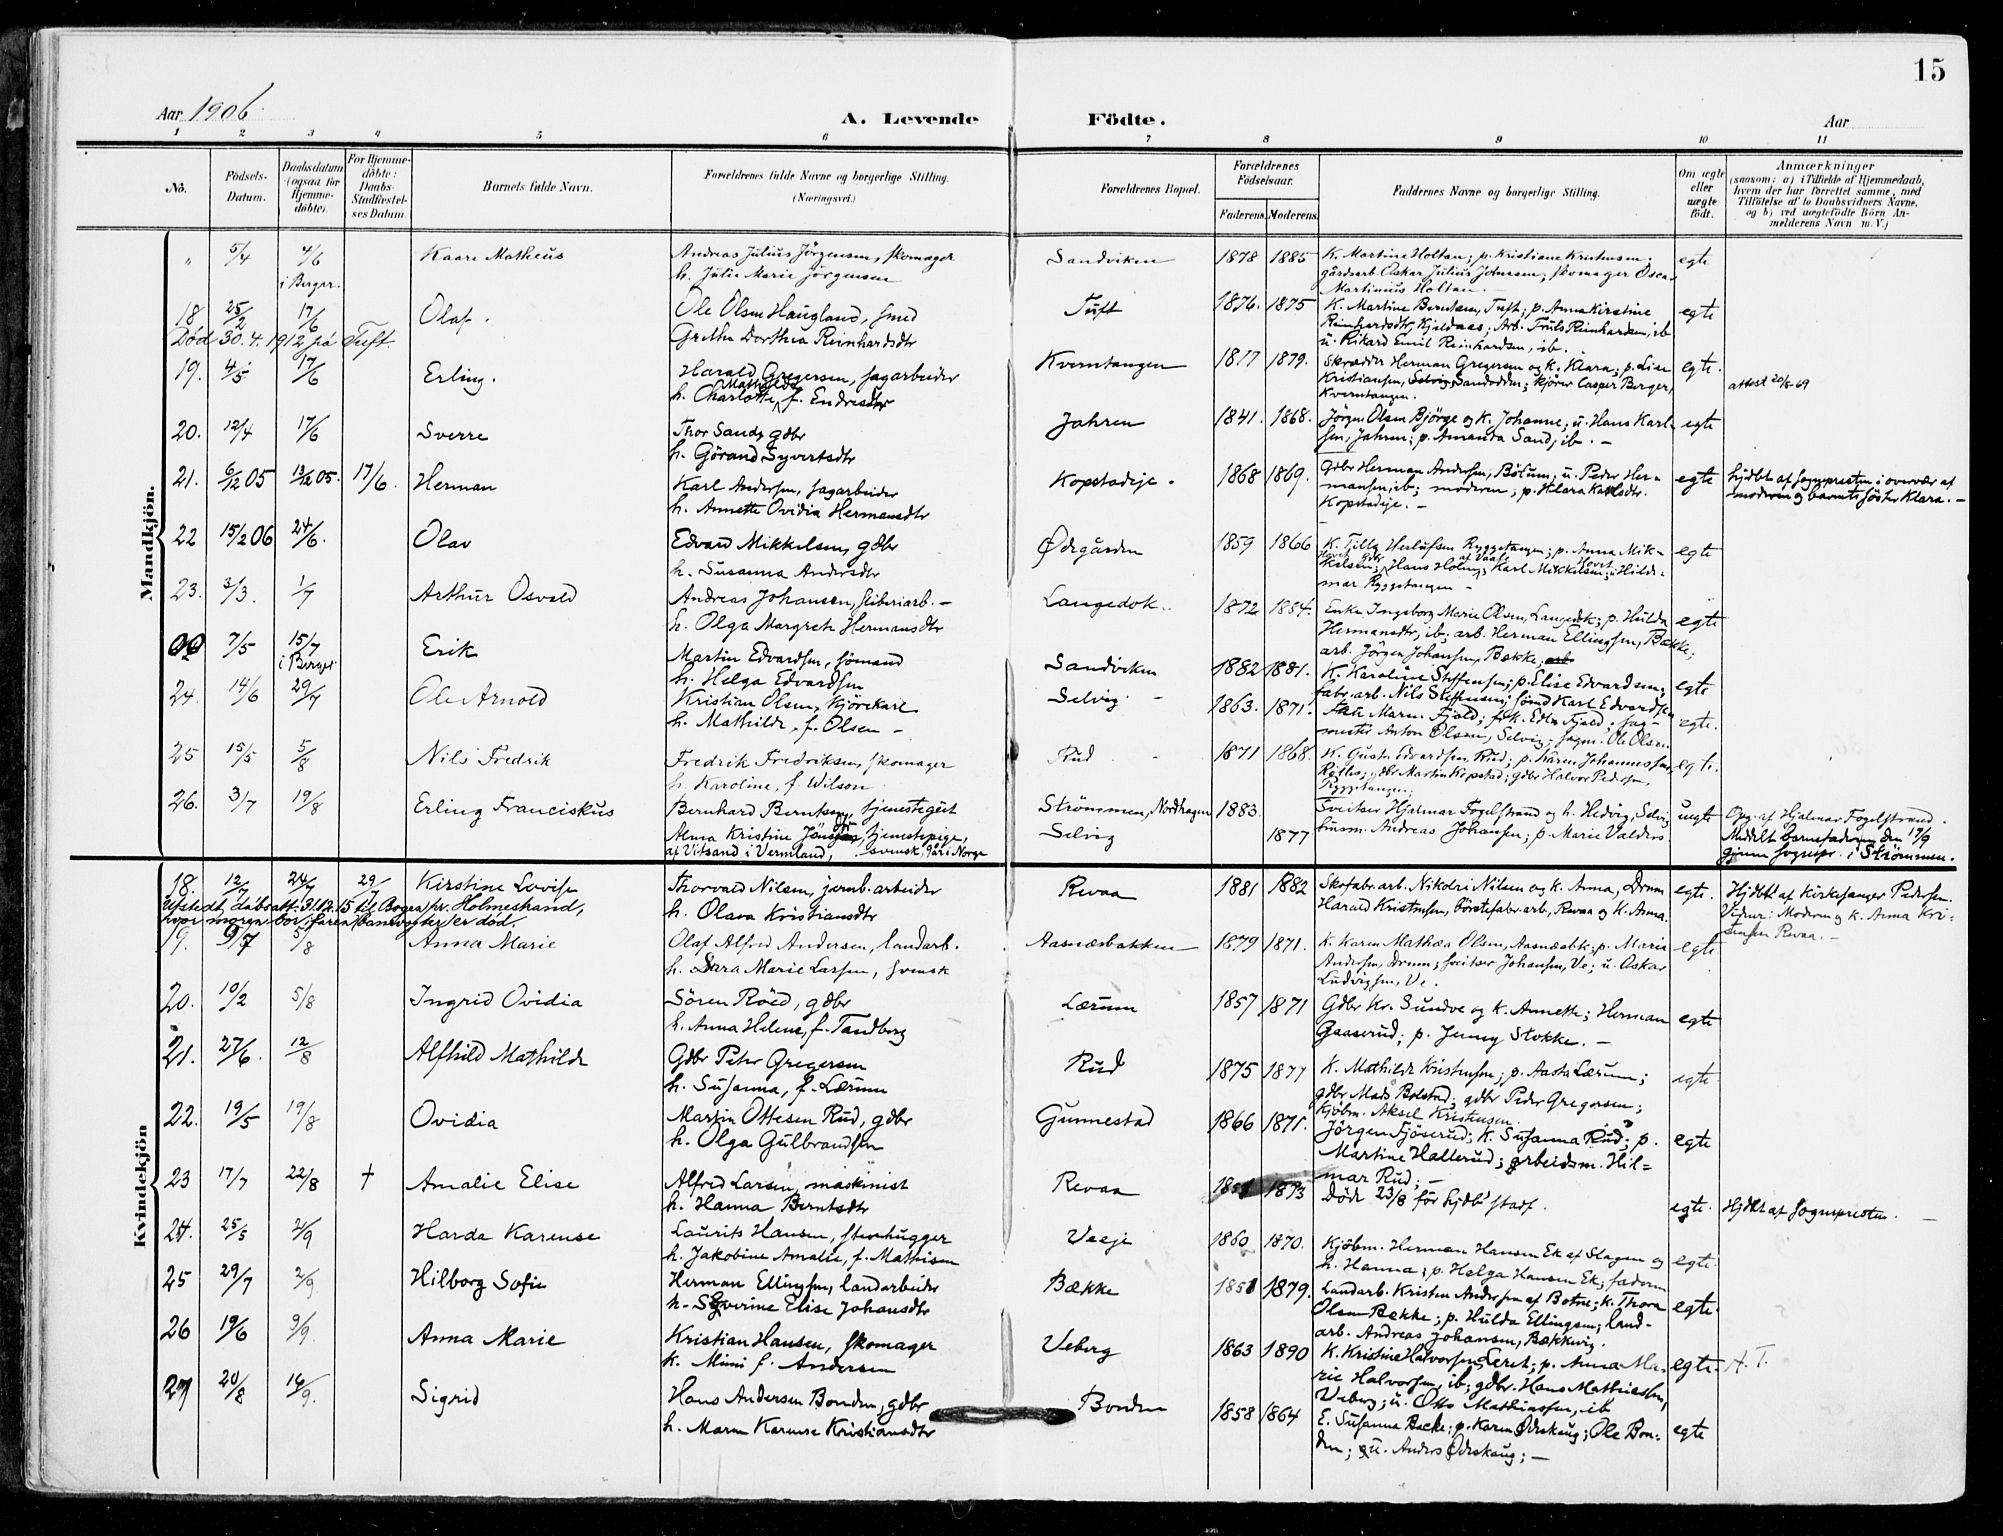 15
Aar 1906.
A. Levende Födte.
Aar
1 2 3 4 5 6 7 8 9 10 11
No.
Födsels-Datum.
Daabsdatum (ogsaa for Hjemme-döbte).
For Hjemme-döbte: Daabs-Stadfæstel-ses Datum.
Barnets fulde Navn.
Forældrenes fulde Navne og borgerlige Stilling.
(Næringsvei.)
Forældrenes Bopæl.
Forældrenes Födselsaar.
Faderens. Moderens.
Faddernes Navne og borgerlige Stilling.
Om ægte eller uægte födt.
Anmærkninger
(saasom: a) i Tilfælde af Hjemmedaab,
hvem der har forrettet samme, med
Tilföielse af to Daabsvidners Navne,
og b) ved uægtefödte Börn An-
melderens Navn m. V.)
Mandkjön.
" 5/4 4/6 i Berger. Kaare Matheus
Andreas Julius Jörgensen, skomager
h. Julie Marie Jörgensen
Sandviken 1878 1885
K. Martine Holtan; p. Kristiane Kristensen;
gårdsarb. Oskar Julius Johnsen; skomager Oscar
Martinius Holtan. egte
18 25/2 17/6 Olaf.
Död 30.4.1912 på Tuft.
Ole Olsen Haugland, smed
Grethe Dorthea Reinhardsdtr
Tuft 1876. 1875
K. Martine Berntsen, Tuft; p. Anna Kirstine
Reinhardsdtr, Kjeldaas; Arb. Truls Reinhardsen, ib
u. Rikard Emil Reinhardsen, ib. egte
19. 4/5 17/6 Erling.
Harald Gregersen, sagarbeider
h. Charlotte Mathilde, f. Endresdtr
Kverntangen 1877 1879.
Skrædder Herman Gregersen og K. Klara; p. Lise
Kristiansen, Selvig, Sandodden; kjører Casper Berger,
Kverntangen. egte.
attest 20/8-69
20. 12/4 17/6 Sverre
Thor Sand, gdbr
h. Görand Syvertsdtr
Jahren 1841. 1868.
Jörgen Olsen Björge og K. Johanne; u. Hans Karl-
sen, Jahren; p. Amanda Sand, ib. - egte
21. 6/12 05 13/12 05. 17/6. Herman
Karl Andersen, sagarbeider
h. Annette Ovidia Hermansdtr
Kopstadeje. 1868 1869.
Gdbr Herman Andersen, Bölum; u. Peder Her-
mansen, ib; moderen; p. Klara Karlsdtr.
Kopstadeje. - egte
hjdbt af sognepresten i overvær af
moderen og barnets søster Klara. -
22 15/2 06 24/6. Olav
Edvard Mikkelsen, gdbr
h. Susanna Andersdtr
Ødegården 1859 1866
K. Tilla Herlufsen Ryggetangen; p. Anna Mik-
kelsen; Hans Holm, Karl Mikkelsen; u. Hilde-
mar Ryggetangen - egte
23. 3/3. 1/7 Arthur Osvald
Andreas Johansen, sliberiarb. -
h. Olga Margrete Hermansdtr
Langedok. 1872 1884.
Enke Ingeborg Marie Olsen, Langedok; p. Hulda
Hermansdtr, ib; arb. Herman Ellingsen, Bække;
arb. Jörgen Johansen, Bække; egte
7/5 15/7 i Berger. Erik
Martin Edvardsen, sömand
h. Helga Edvardsen
Sandviken 1882 1881.
K. Karoline Steffensen; p. Elise Edvardsen;
fabr. arb. Nils Steffensen; sömd Karl Edvardsen egte
24. 14/6 29/7 Ole Arnold
Kristian Olsen, kjörekarl
h. Mathilde, f. Olsen -
Selvig 1863. 1871.
Maren Fjeld; frk. Edle Fjeld; sag-
mester Anton Olsen, Selvig; sagm. Ole Olsen egte.
25 15/5 5/8 Nils Fredrik
Fredrik Fredriksen, skomager
h. Karoline, f. Wilson
Rud 1871 1868.
K. Gusta Edvardsen Rud; p. Karen Johannessen,
gdbr Martin Kopstad; gdbr Halvor Pedersen,
Ryggetangen. egte.
26. 3/7 19/8 Erling Franciskus
Bernhard Berntsen, tjenestegut
Alma Kristine Jönsson, tjenstepige,
af Vitsand i Vermland, svensk, går i Norge
Strömmen, Nordhagen 1883.
Selvig 1877
Sveitser Hjalmar Fogelstrand og h. Hedvig, Selvig
husm. Andreas Johansen; p. Marie Valders uegte
Opg. af Hjalmar Fogelstrand.
Meddelt barnefaderen den 17/9
gjenm sognepr. i Strömmen.
Kvindekjön
18. 12/7 24/7 29/7 Kirstine Lovise
Utstedt dåbsatt. 31.12.15 til Bogen pr. Holmestrand,
Thorvald Nilsen, jernb. arbeider
h. Olava Kristiansdtr
Revaa 1881 1882
Skofabr. arb. Nikolai Nilsen og k. Anna, Drmn
Harald Kristensen, börstefabr. arb., Revaa og K. Anna. egte.
Hjdbt af Kirkesanger Pedersen.
Vidner: Moderen og k. Anna Kri-
stensen Revaa. -
19. 9/7 5/8 Anna Marie
Olaf Alfred Andersen, landarb.
h. Sara Marie Larsen, svensk
Aasnæsbakken 1879 1871.
K. Karen Mathea Olsen, Aasnæsbk; p. Maria
Andersen, Drmn; sveitser Johansen, Ve; u. Oskar
Ludvigsen, Ve. egte
20. 10/2 5/8 Ingrid Ovidia
Sören Röed, gdbr
h. Anna Helene, f. Tandberg
Lærum 1857 1871
Gdbr Kr. Sundve og k. Annette; Herman
Gaaserud; p. Jenny Stokke. - egte
21. 27/6. 12/8 Alfhild Mathilde
Gdbr Peter Gregersen
h. Susanna, f. Lærum
Rud 1875 1877
K. Mathilde Kristensen; p. Aasta Lærum;
gdbr Mads Bolstad; gdbr Peder Gregersen;
Kjöbm. Aksel Kristensen. egte
22. 19/5 19/8 Ovidia
Martin Ottesen Rud, gdbr
h. Olga Gulbrandsen
Gunnestad 1866 1871.
Jörgen Fjöserud; K. Susanna Rud; p.
Martine Hallerud; arbeidsm. Hil-
mar Rud; - egte
23 17/7 22/8 † Amalie Elise
Alfred Larsen, maskinist
h. Hanna Berntsdtr
Revaa 1873
Döde 23/8 för hjdbs stadf. egte.
Hjdbt af sognepresten. -
24. 25/5 2/9 Harda Karense
Laurits Hansen, stenhugger
h. Jakobine Amalie, f. Mathisen
Veeje 1860 1870.
Kjöbm. Herman Hansen Ek af Slagen og
h. Hanna; p. Helga Hansen Ek; faderen egte.
25 29/7 2/9 Hilborg Sofie
Herman Ellingsen, landarbeider
h. Severine Elise Johansdtr
Bække 1851 1879.
Landarb. Kristen Andersen af Botne; k. Thora
Olsen Bække; p. Hulda Ellingsen; land-
arb. Andreas Johansen, Bækkevig. egte.
26 19/6 9/9. Anna Marie
Kristian Hansen, skomager
k. Mimi f. Andersen
Veberg 1863 1890
K. Kristine Halvorsen, Leret; p. Anna Ma-
rie Halvorsen, ib; gdbr. Hans Mathiassen,
Veberg; u. Otto Mathiassen, ib egte. A.T.
27 20/8 16/9. Sigrid
Hans Andersen Bonden, gdbr
h. Maren Karense Kristiansdtr
Bonden 1858 1864
E. Susanna Bække; p. Karen Ødeskaug; Ole Bon-
den; u. Anders Ødeskaug; - egte